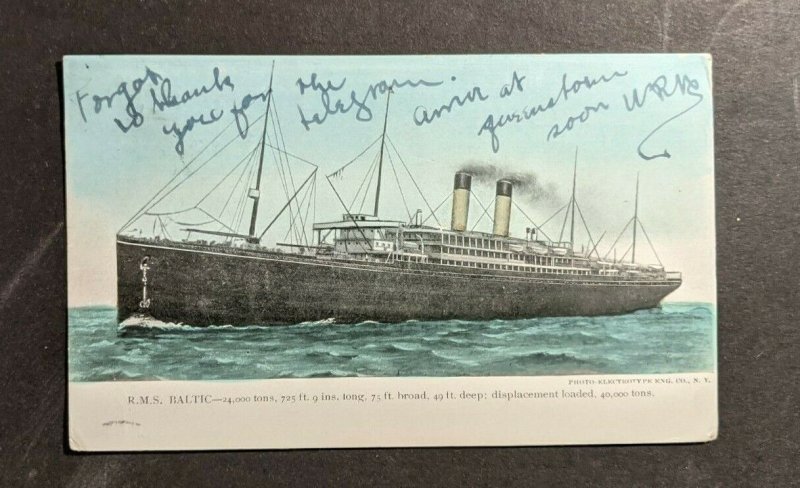 Forgot to thank you for the telegram.
arrive at queenstown soon WRB
PHOTO-ELECTROTYPE ENG. CO., N. Y.
R.M.S. BALTIC—24,000 tons, 725 ft. 9 ins. long, 75 ft. broad, 49 ft. deep; displacement loaded, 40,000 tons.